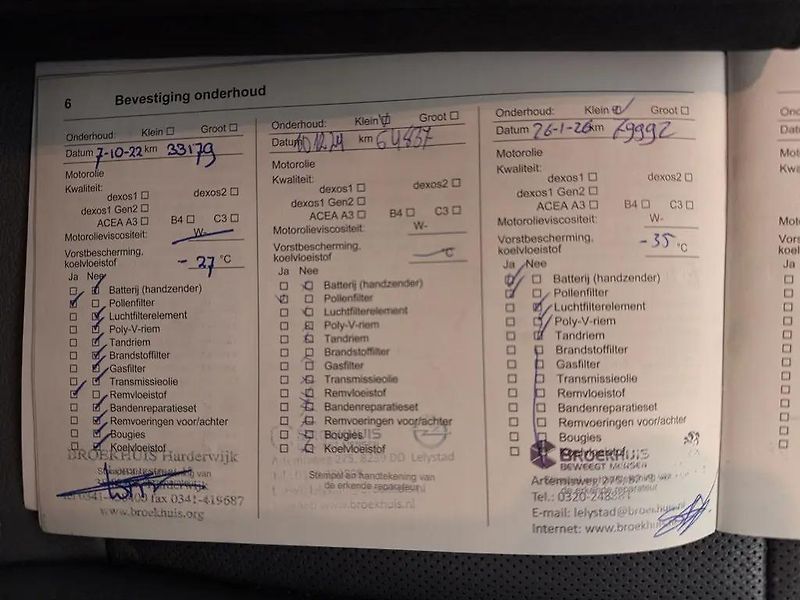 6 Bevestiging onderhoud
Onderhoud: Klein Groot
Datum 7-10-22 km 33179
Motorolie
Kwaliteit:
dexos1 dexos2
dexos1 Gen2
ACEA A3 B4 C3
Motorolieviscositeit: W-
Vorstbescherming,
koelvloeistof -27 °C
Ja Nee
Batterij (handzender)
Pollenfilter
Luchtfilterelement
Poly-V-riem
Tandriem
Brandstoffilter
Gasfilter
Transmissieolie
Remvloeistof
Bandenreparatieset
Remvoeringen voor/achter
Bougies
Koelvloeistof
BROEKHUIS Harderwijk
fax 0341-419687
www.broekhuis.org
Onderhoud: Klein Groot
Datum 10 12 24 km 64837
Motorolie
Kwaliteit:
dexos1 dexos2
dexos1 Gen2
ACEA A3 B4 C3
Motorolieviscositeit: W-
Vorstbescherming,
koelvloeistof °C
Ja Nee
Batterij (handzender)
Pollenfilter
Luchtfilterelement
Poly-V-riem
Tandriem
Brandstoffilter
Gasfilter
Transmissieolie
Remvloeistof
Bandenreparatieset
Remvoeringen voor/achter
Bougies
Koelvloeistof
Artemisweg 275, 8239 DD Lelystad
Stempel en handtekening van
de erkende reparateur
www.broekhuis.nl
Onderhoud: Klein Groot
Datum 26-1-26 km 79992
Motorolie
Kwaliteit:
dexos1 dexos2
dexos1 Gen2
ACEA A3 B4 C3
Motorolieviscositeit: W-
Vorstbescherming,
koelvloeistof -35 °C
Ja Nee
Batterij (handzender)
Pollenfilter
Luchtfilterelement
Poly-V-riem
Tandriem
Brandstoffilter
Gasfilter
Transmissieolie
Remvloeistof
Bandenreparatieset
Remvoeringen voor/achter
Bougies
BROEKHUIS
BEWEEGT MENSEN
Artemisweg 275
de erkende reparateur
Tel.: 0320-2488
E-mail: lelystad@broekhuis.nl
Internet: www.broekhuis